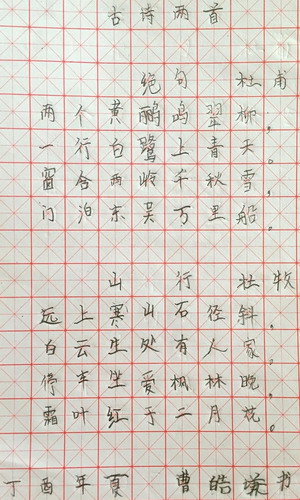 古诗两首
绝句 杜甫
两个黄鹂鸣翠柳,
一行白鹭上青天。
窗含西岭千秋雪,
门泊东吴万里船。
山行 杜牧
远上寒山石径斜,
白云生处有人家。
停车坐爱枫林晚,
霜叶红于二月花。
丁酉年夏 曹皓 书